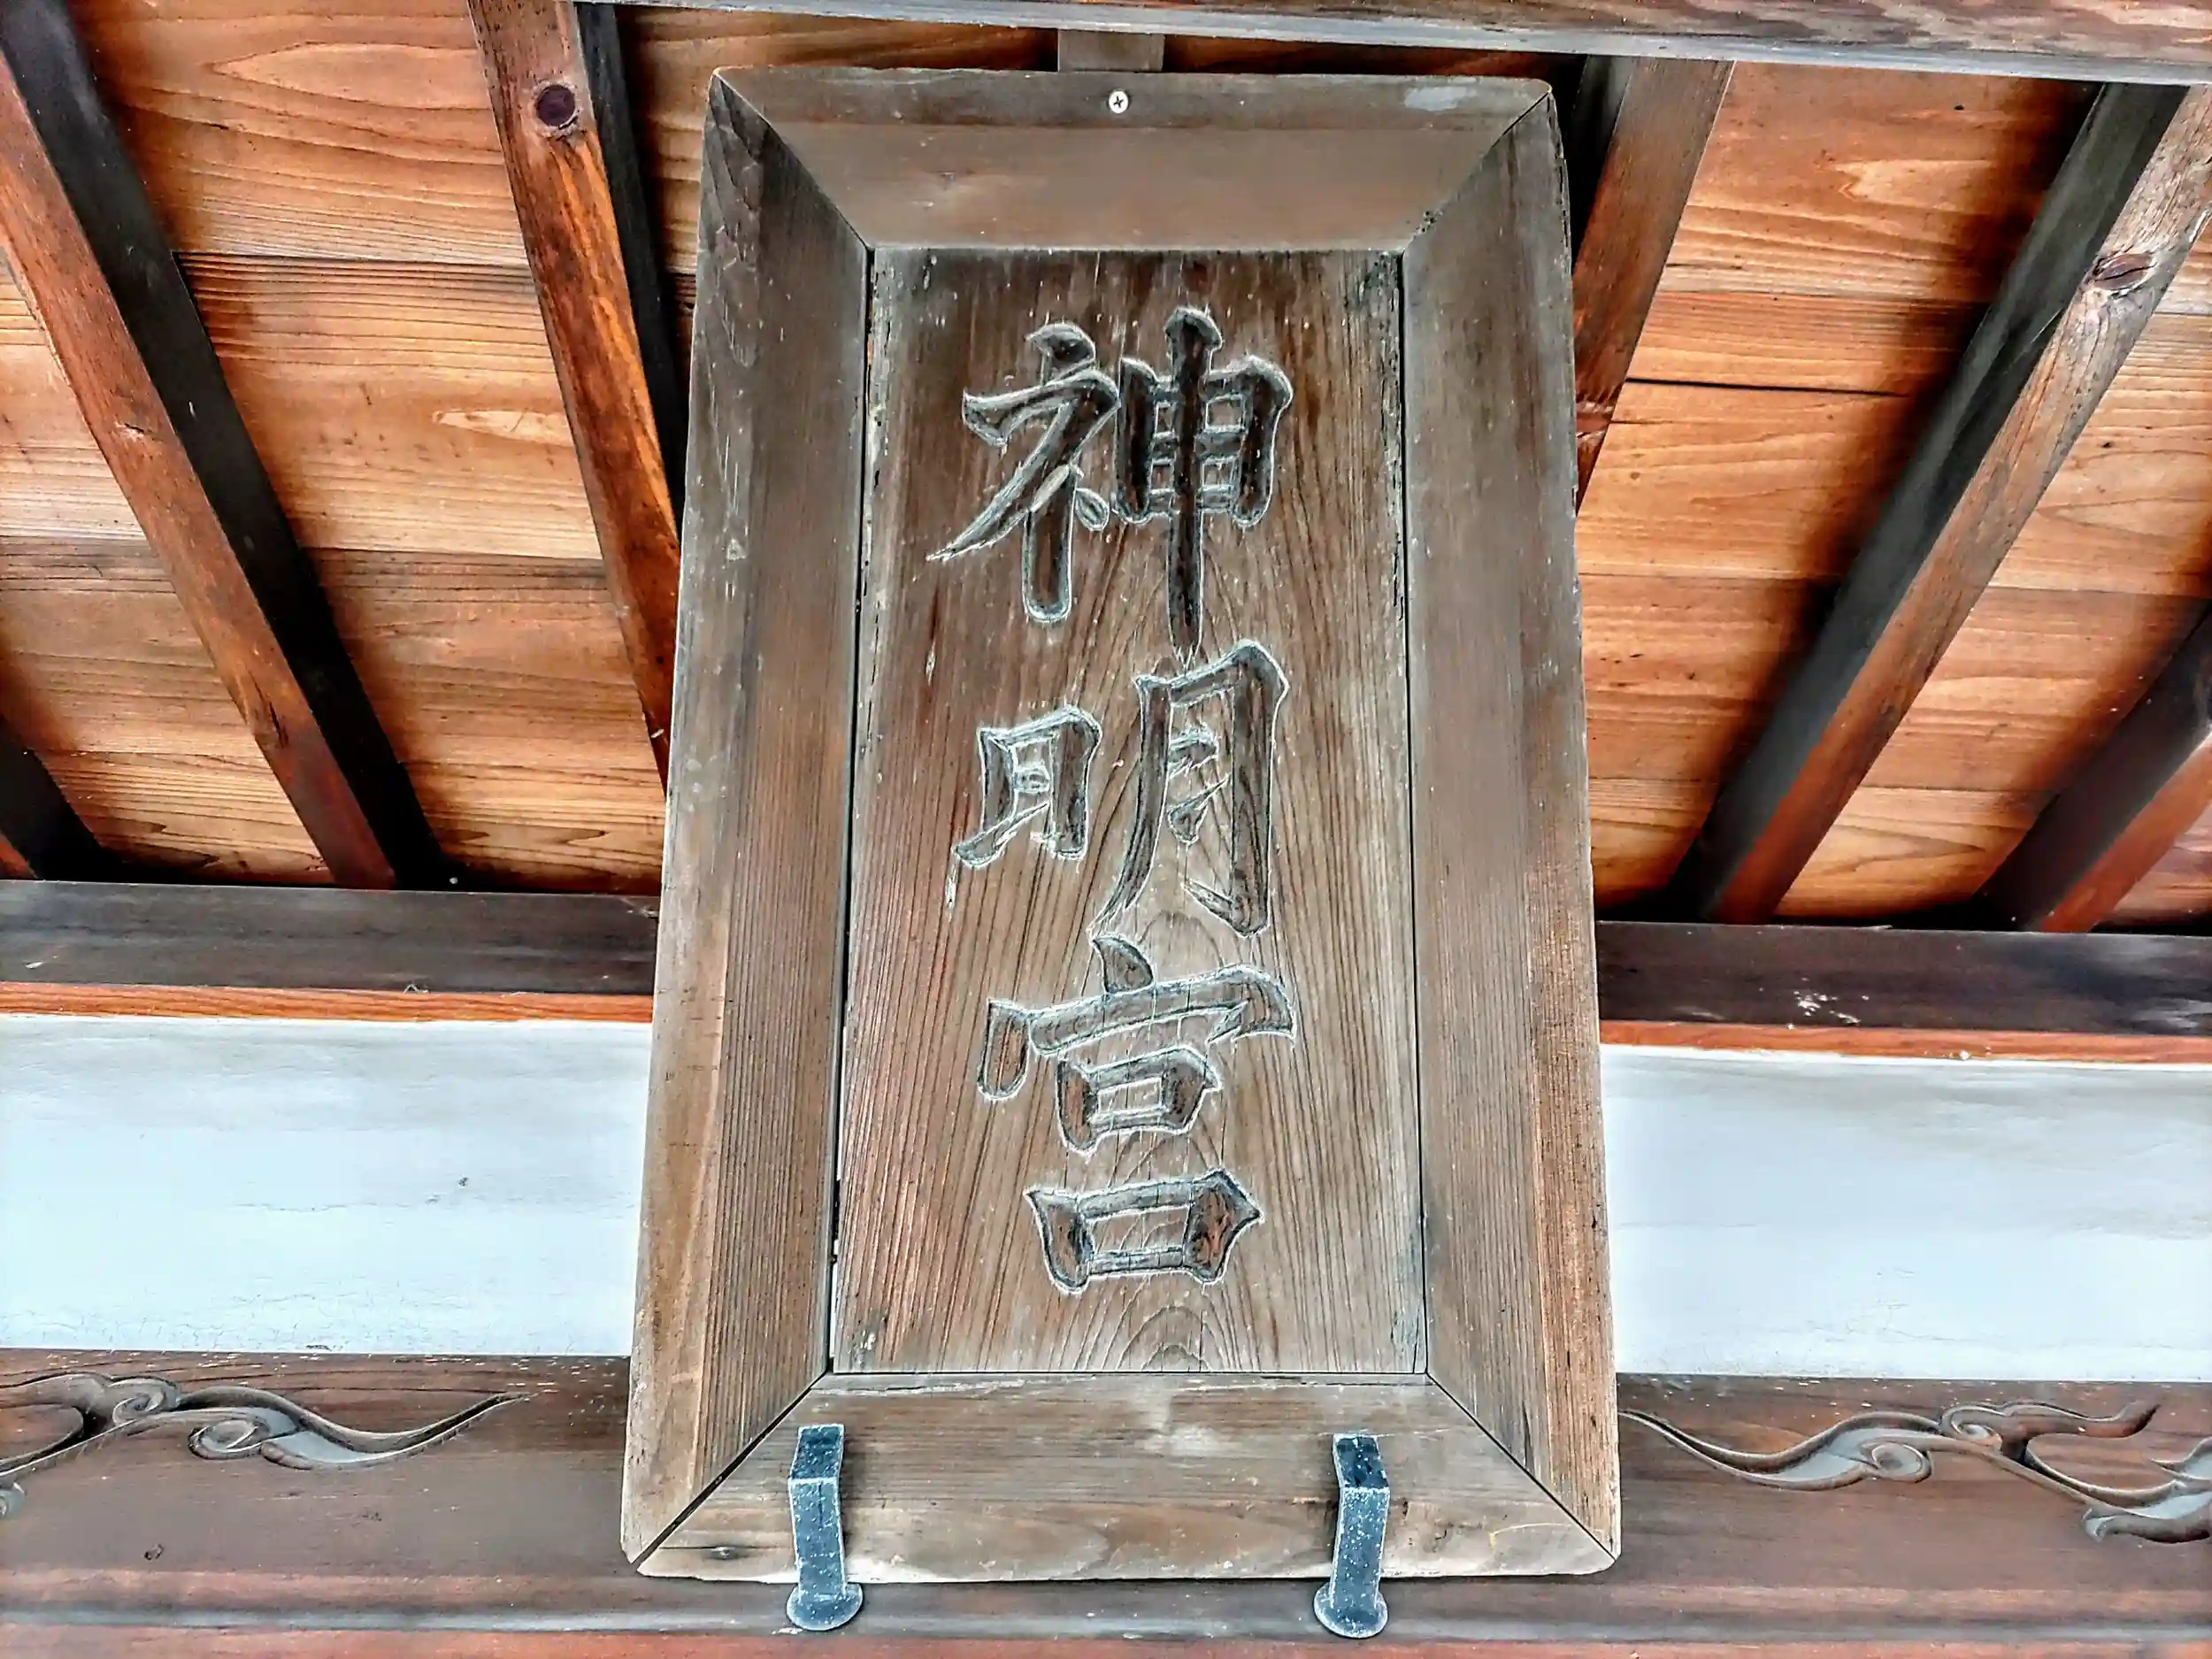 神明宮